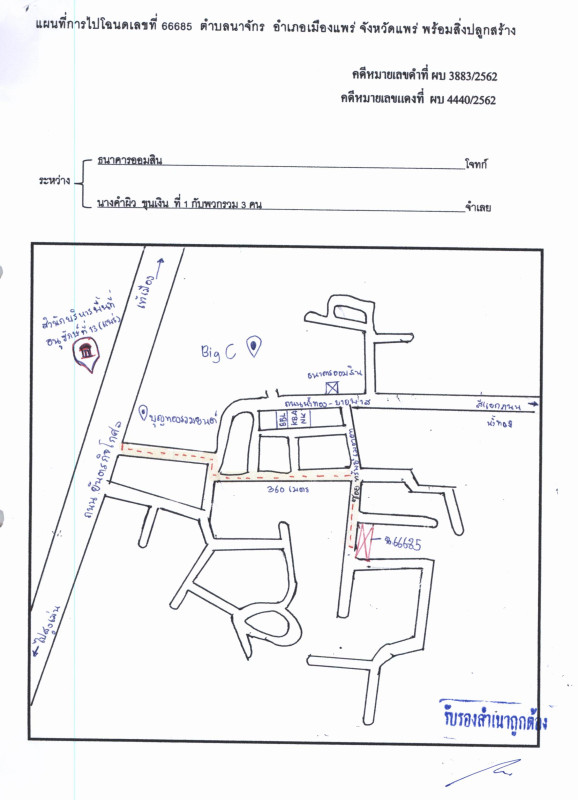 แผนที่การไปโฉนดเลขที่ 66685 ตำบลนาจักร อำเภอเมืองแพร่ จังหวัดแพร่ พร้อมสิ่งปลูกสร้าง
คดีหมายเลขดำที่ ผบ 3883/2562
คดีหมายเลขแดงที่ ผบ 4440/2562
ธนาคารออมสิน โจทก์
ระหว่าง
นางคำผิว ขุนเงิน ที่ 1 กับพวกรวม 3 คน จำเลย
เข้าเมือง
สำนักบริหารพื้นที่
อนุรักษ์ที่ 13 (แพร่)
Big C
ธนาคารออมสิน
ถนนน้ำทอง-
สี่แยกถนน
น้ำทอง
BBL
KBA
NK
ถนน ยันตรกิจโกศล
360 เมตร
66685
ไปสูงเม่น
รับรองสำเนาถูกต้อง